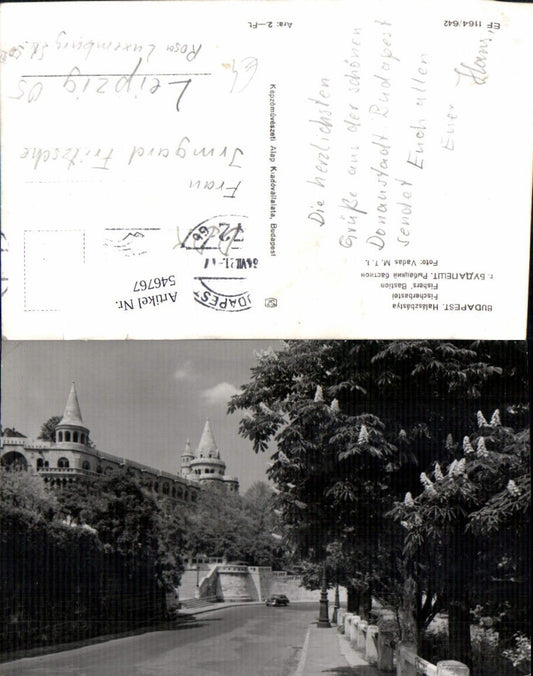 BUDAPEST. Halászbástya
Fischerbastei
Fishers' Bastion
г. БУДАПЕШТ. Рыбацкий бастион
Foto: Vadas M. T. I.
Die herzlichsten
Grüße aus der schönen
Donaustadt Budapest
sendet Euch allen
Euer
Hans
EF 1164/642
Ára: 2.—Ft.
Képzőművészeti Alap Kiadóvállalata, Budapest
BUDAPEST
72
Artikel Nr.
546767
Frau
Irmgard Fritzsche
Leipzig O5
Rosa Luxemburg St.